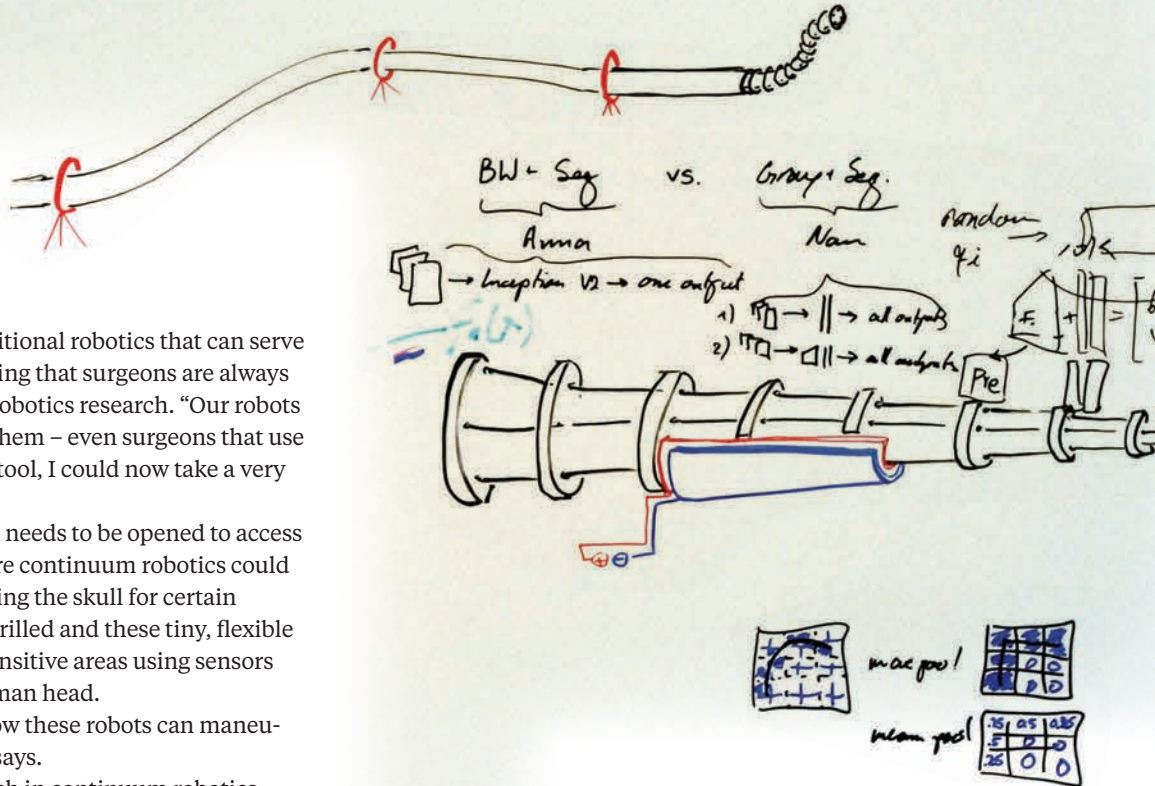 itional robotics that can serve
ing that surgeons are always
obotics research. “Our robots
hem – even surgeons that use
tool, I could now take a very
needs to be opened to access
re continuum robotics could
ing the skull for certain
rilled and these tiny, flexible
nsitive areas using sensors
man head.
ow these robots can maneu-
says.
h in continuum robotics
BW + Seg vs. Group + Seg.
Anna Nan
→ Inception V2 → one output
1) → || → all outputs
2) → || → all outputs
random
Pre
+ −
max pool
0 0
0 0
mean pool
.25 0.5 0.25
.5 0 0
.25 0 0